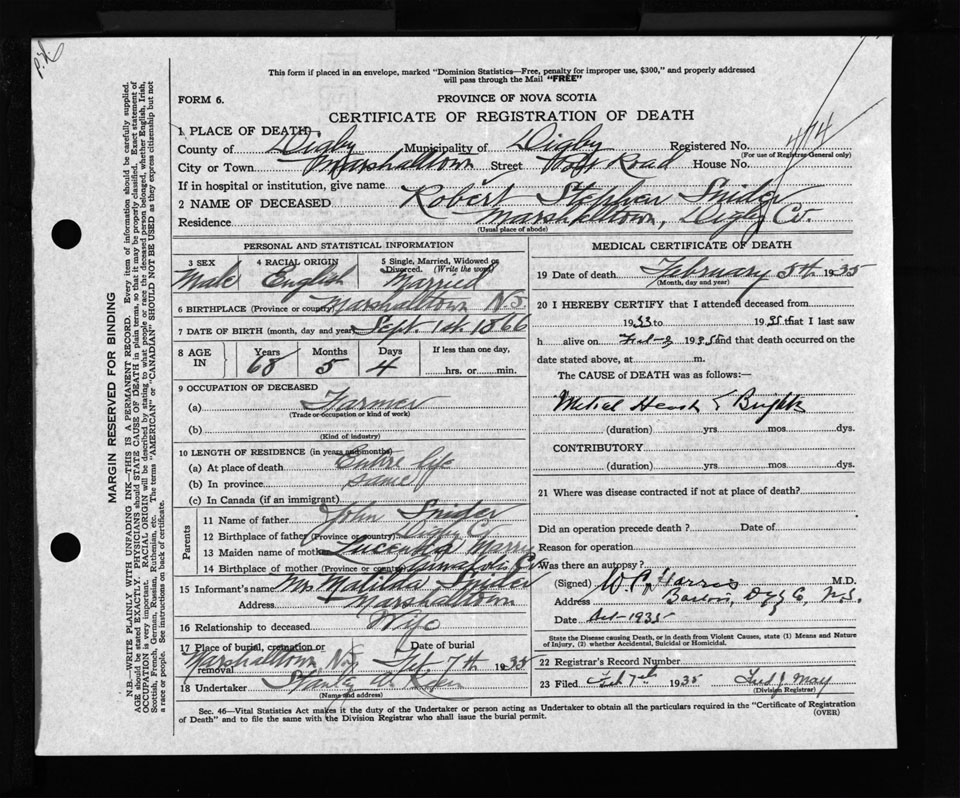 P.N.
This form if placed in an envelope, marked "Dominion Statistics—Free, penalty for improper use, $300," and properly addressed
will pass through the Mail "FREE"
FORM 6.
PROVINCE OF NOVA SCOTIA
CERTIFICATE OF REGISTRATION OF DEATH
1 PLACE OF DEATH
County of Digby Municipality of Digby Registered No. 414
(For use of Registrar-General only)
City or Town Marshalltown Street Road House No.
If in hospital or institution, give name
2 NAME OF DECEASED Robert Stephen Snider
Residence Marshalltown, Digby Co.
(Usual place of abode)
MARGIN RESERVED FOR BINDING
N.B.—WRITE PLAINLY WITH UNFADING INK—THIS IS A PERMANENT RECORD. Every item of information should be carefully supplied.
AGE should be stated EXACTLY. PHYSICIANS should STATE CAUSE OF DEATH in plain terms, so that it may be properly classified. Exact statement of
OCCUPATION is very important. RACIAL ORIGIN will be described by stating to what people or race the deceased person belonged, whether English, Irish,
Scottish, French, German, Russian, Ruthenian, etc. The terms "AMERICAN" or "CANADIAN" SHOULD NOT BE USED as they express citizenship but not
a race or people. See instructions on back of certificate.
PERSONAL AND STATISTICAL INFORMATION
3 SEX 4 RACIAL ORIGIN 5 Single, Married, Widowed or
Divorced. (Write the word)
Male English Married
6 BIRTHPLACE (Province or country) Marshalltown N.S.
7 DATE OF BIRTH (month, day and year) Sept. 1st 1866
8 AGE IN Years Months Days If less than one day,
68 5 4 hrs. or min.
9 OCCUPATION OF DECEASED
(a) Farmer
(Trade or occupation or kind of work)
(b)
(Kind of industry)
10 LENGTH OF RESIDENCE (in years and months)
(a) At place of death Entire life
(b) In province same
(c) In Canada (if an immigrant)
Parents
11 Name of father John Snider
12 Birthplace of father (Province or country) Digby Co
13 Maiden name of mother
14 Birthplace of mother (Province or country) Annapolis Co
15 Informant's name Mrs Matilda Snider
Address Marshalltown
16 Relationship to deceased Wife
17 Place of burial, cremation or removal Date of burial
Marshalltown 7th 1935
18 Undertaker
(Name and address)
MEDICAL CERTIFICATE OF DEATH
19 Date of death February 5th 1935
(Month, day and year)
20 I HEREBY CERTIFY that I attended deceased from
1933 to 1935 that I last saw
h alive on 1935 and that death occurred on the
date stated above, at m.
The CAUSE of DEATH was as follows:—
Mitral Heart & Brights
(duration) yrs mos dys.
CONTRIBUTORY
(duration) yrs. mos. dys.
21 Where was disease contracted if not at place of death?
Did an operation precede death? Date of
Reason for operation
Was there an autopsy?
(Signed) Harris M.D.
Address Barton, Co, N.S.
Date 1935
State the Disease causing Death, or in death from Violent Causes, state (1) Means and Nature
of Injury, (2) whether Accidental, Suicidal or Homicidal.
22 Registrar's Record Number
23 Filed Feb 7th 1935 May
(Division Registrar)
Sec. 46—Vital Statistics Act makes it the duty of the Undertaker or person acting as Undertaker to obtain all the particulars required in the "Certificate of Registration
of Death" and to file the same with the Division Registrar who shall issue the burial permit.
(OVER)